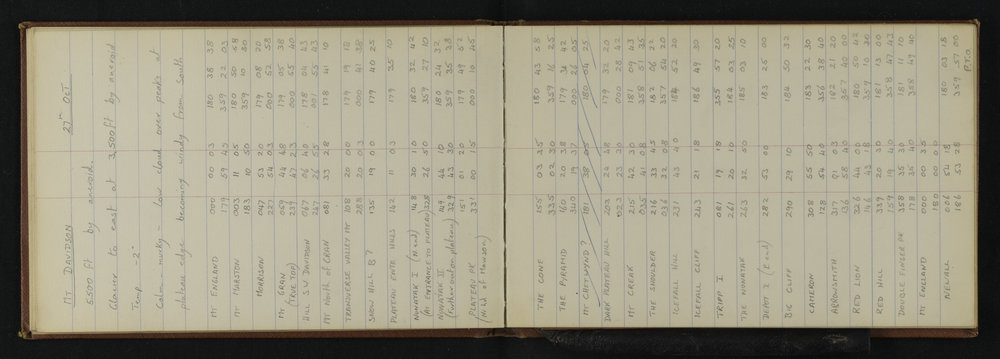 MT DAVIDSON 27th OCT
5,500 ft by aneroid.
Glacier to east at 3,500 ft by aneroid.
Temp -2°
Calm - murky - low cloud over peaks at
plateau edge becoming windy from South
MT ENGLAND 000 00 03 180 38 38
179 59 45 359 22 03
MT MARSTON 003 11 05 180 50 58
183 10 50 359 10
MORRISON 047 53 20 179 08 20
227 54 03 000 52 58
MT GRAN 059 42 48 179 05 38
(TRUE TOP) 239 000 55 40
HILL S.W. DAVIDSON 067 178 04 43
247 26 55 001 55 43
MT NORTH OF GRAN 081 33 28 178 41
TRANSVERSE VALLEY MT 108 20 00 179 19 18
288 20 03 000 41 38
SNOW HILL B? 135 19 00 179 40 25
PLATEAU ROUTE HILLS 142 11 03 179 35 10
NUNATAK I (N end) 148 30 10 180 32 42
(At ENTRANCE TO PLATEAU) 328 26 50 359 27 10
NUNATAK II 149 44 10 180 24 32
(further out on plateau) 329 43 30 359 35 28
PLATEAU PK 151 01 20 179 49 52
(N.W. of Mawson) 331 00 15 000 10 45
THE CONE 155 03 25 180 43 58
335 02 30 359 16 25
THE PYRAMID 160 20 28 179 34 02
340 19 37 000 26 05
MT CHETWYND? 181 38 180 04 25
DARK PLATEAU HILL 203 24 28 179 32 20
023 23 20 000 28 42
MT CREAK 215 42 30 181 07 23
035 41 08 358 53 35
THE SHOULDER 216 33 45 182 06 22
036 32 08 357 54 20
ICEFALL HILL 231 43 40 184 52 20
ICEFALL CLIFF 243 21 18 186 49 30
TRIPP I 081 19 18 355 57 20
261 20 10 184 03 25
THE NUNATAK 263 32 50 185 03 10
DEPOT I (E end) 282 53 00 183 25 00
BIG CLIFF 290 29 10 184 50 32
CAMERON 308 55 50 183 22 30
128 54 40 356 38 40
ARROWSMITH 317 58 03 182 21 20
136 01 40 357 40 00
RED LION 326 44 00 180 50 42
146 43 18 359 10 30
RED HILL 339 20 30 181 13 00
159 19 20 358 47 43
DOUBLE FINGER PK 358 35 30 181 11 10
178 35 40 358 49 40
MT ENGLAND 000 00 35
180 00 00
NEWALL 006 54 18 180 03 18
186 53 28 359 57 00
P.T.O.